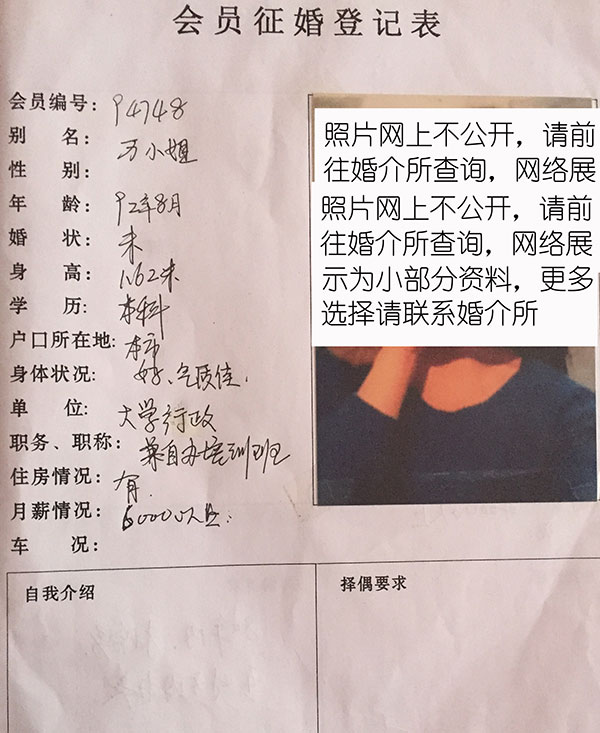 会员征婚登记表
会员编号: 94748
别 名: 万小姐
性 别:
年 龄: 92年8月
婚 状: 未
身 高: 1.62米
学 历: 本科
户口所在地: 本市
身体状况: 好、气质佳.
单 位: 大学行政
职务、职称: 兼自办培训班
住房情况: 有.
月薪情况: 6000以上.
车 况:
照片网上不公开，请前
往婚介所查询，网络展
照片网上不公开，请前
往婚介所查询，网络展
示为小部分资料，更多
选择请联系婚介所
自我介绍
择偶要求